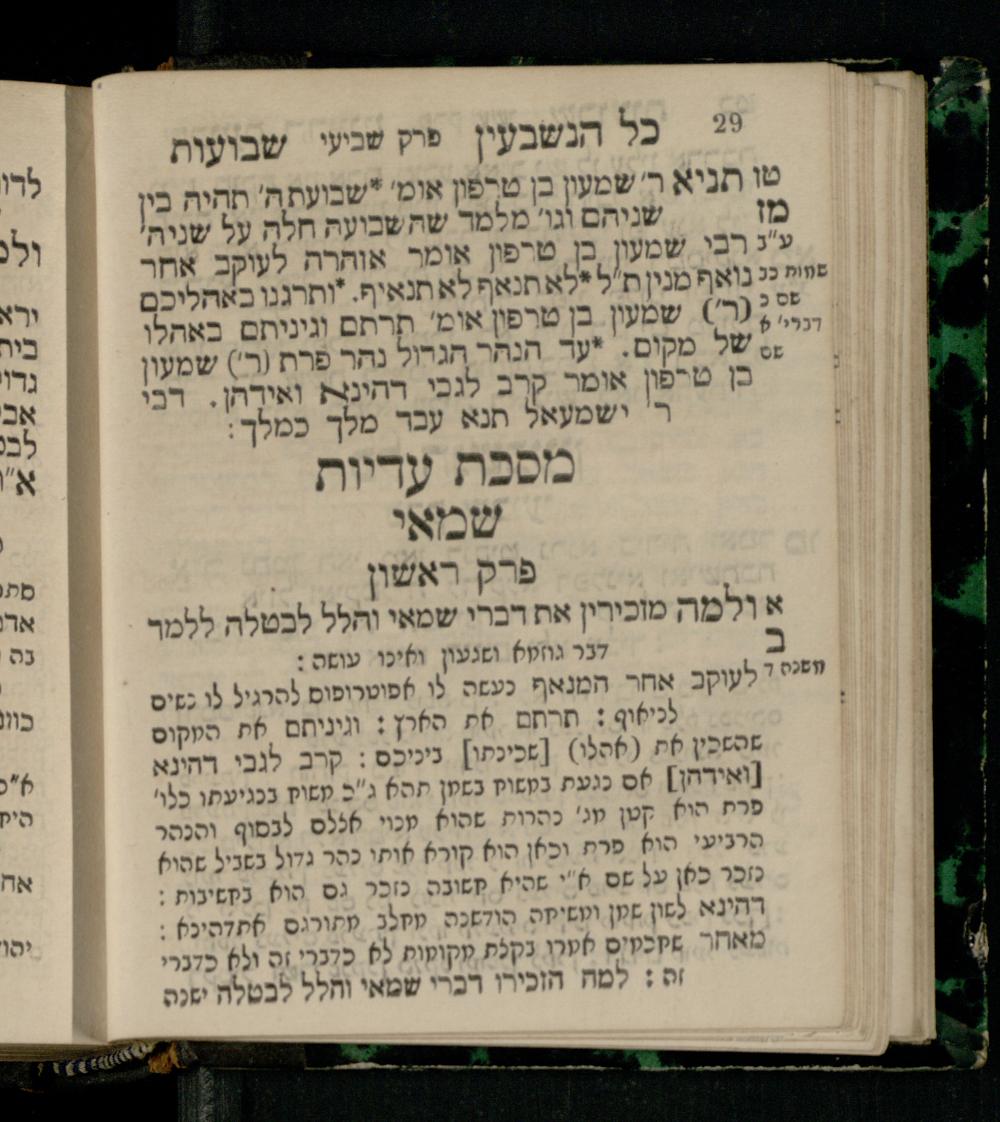 29 כל הנשבעין פרק שביעי שבועות
טו תניא ר' שמעון בן טרפון אומ' *שבועת ה' תהיה בין
מז שניהם וגו' מלמד שהשבועה חלה על שניה'
ע"ב רבי שמעון בן טרפון אומר אזהרה לעוקב אחר
שמות ככ נואף מנין ת"ל *לא תנאף לא תנאיף. *ותרגנו באהליכם
שם כ (ר') שמעון בן טרפון אומ' תרתם וגיניתם באהלו
דברי' א של מקום. *עד הנהר הגדול נהר פרת (ר') שמעון
שם בן טרפון אומר קרב לגבי דהינא ואידהן. דבי
ר' ישמעאל תנא עבד מלך כמלך:
מסכת עדיות
שמאי
פרק ראשון
א ולמה מזכירין את דברי שמאי והלל לבטלה ללמד
ב
דבר גוזמא ושגעון ואינו עושה:
משנה ד לעוקב אחר המנאף נעשה לו אפוטרופוס להרגיל לו נשים
לניאוף: תרתם את הארץ: וגיניתם את המקום
שהשכין את (אהלו) [שכינתו] ביניכם: קרב לגבי דהינא
[ואידהן] אם נגעת במשוח בשמן תהא ג"כ משוח בנגיעתו כלו'
פרת הוא קטן מג' נהרות שהוא מנוי אצלם לבסוף והנהר
הרביעי הוא פרת וכאן הוא קורא אותו נהר גדול בשביל שהוא
נזכר כאן על שם א"י שהיא חשובה נזכר גם הוא בחשיבות:
דהינא לשון שמן ומשיחה הודשנה מחלב מתורגם אתדהינא:
מאחר שחכמים אמרו בקצת מקומות לא כדברי זה ולא כדברי
זה: למה הזכירו דברי שמאי והלל לבטלה ישנה